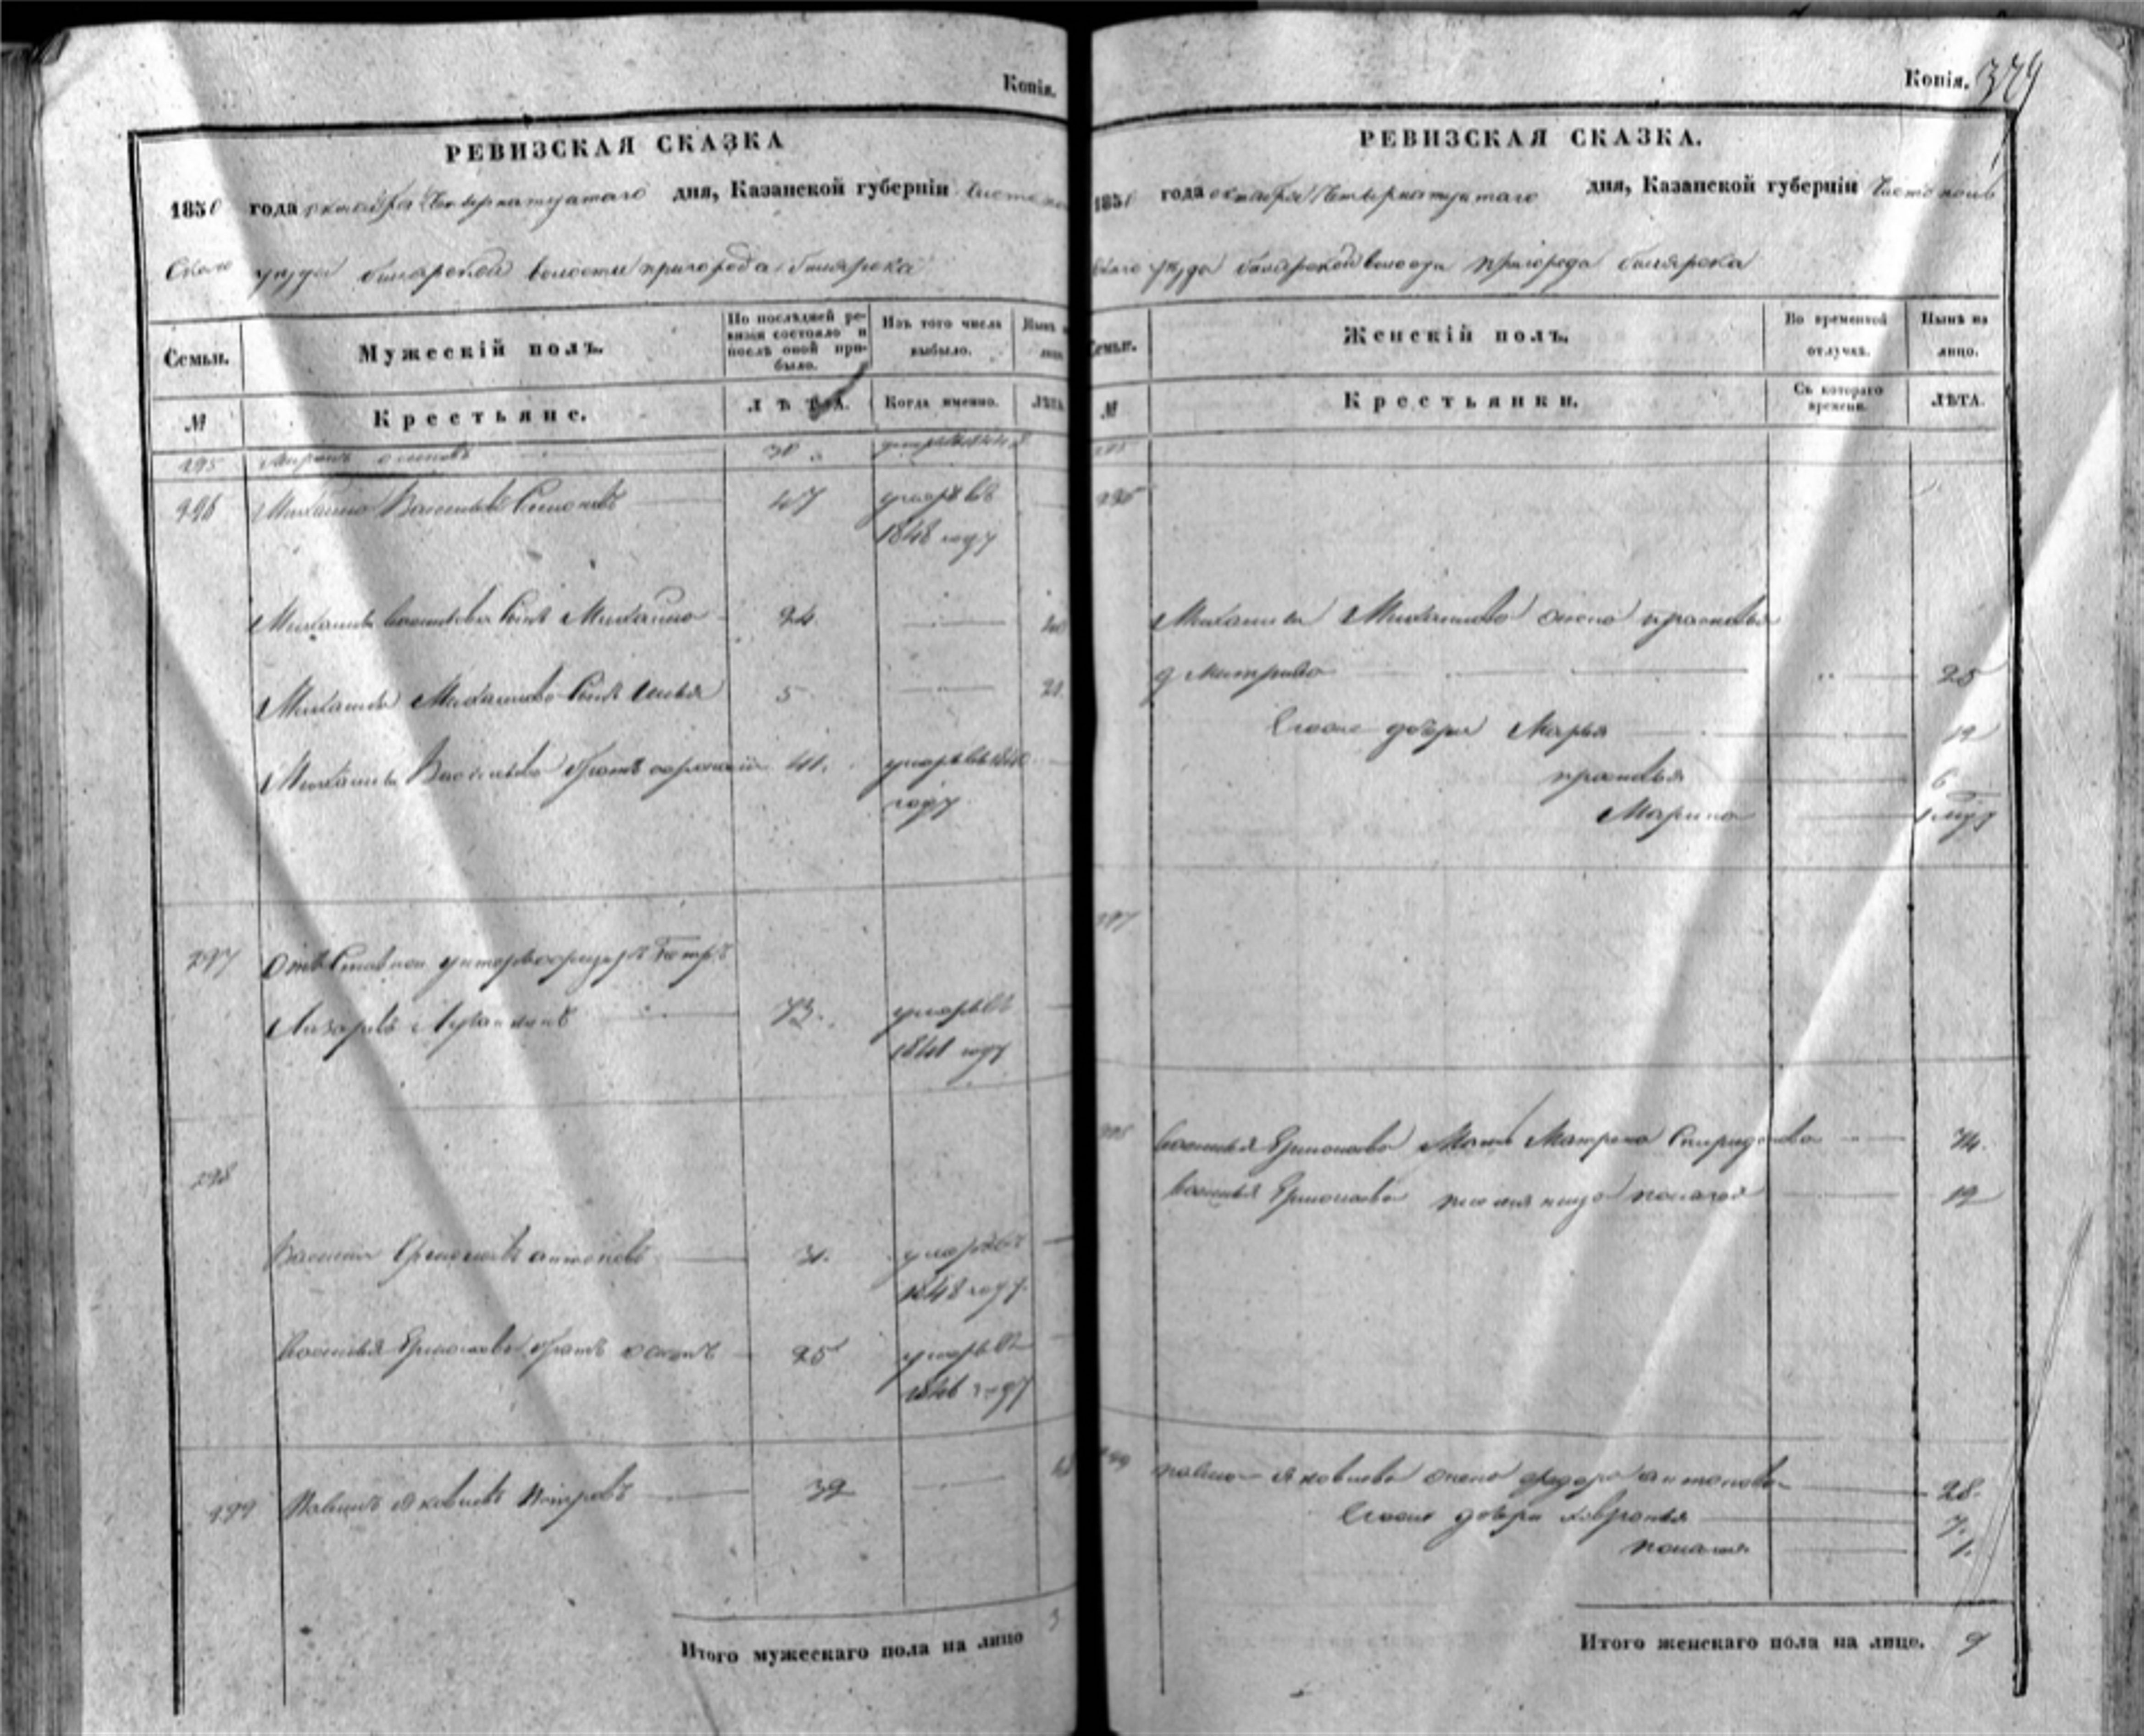 Копія.
РЕВИЗСКАЯ СКАЗКА
1850 года октября Четырнатцатаго дня, Казанской губерніи Чистопол
Скаго уезда билярской волости пригорода билярска
Семьи.
Мужескій полъ.
По послѣдней ревизіи состояло и послѣ оной прибыло.
Изъ того числа выбыло.
Нынѣ н
лицо.
№
Крестьяне.
ЛѢТА.
Когда именно.
ЛѢТА
295 осиповъ
296 Михайло Васильевъ Симоновъ 47 умеръ въ
1848 году
Михайла Васильева Сынъ Михайло 24
Михайла Михайлова Сынъ Илья 5 21
Михайла Васильева братъ 41. умеръ въ
году
297 Отставной унтеръ офицеръ Петръ
Лазаревъ 73. умеръ въ
1841 году
298
Василий Ермолаевъ антоновъ 31. умеръ въ
1848 году.
Василья Ермолаева братъ осипъ 25 умеръ въ
1846 году
299 Павелъ Яковлевъ Петровъ 32
Итого мужескаго пола на лицо 3
Копія. 379
РЕВИЗСКАЯ СКАЗКА.
1850 года октября Четырнатцатаго дня, Казанской губерніи Чистополь
Скаго уезда билярской волости пригорода билярска
Семьи.
Женскій полъ.
Во временной отлучкѣ.
Нынѣ на лицо.
№
Крестьянки.
Съ котораго времени.
ЛѢТА.
295
296
Михайла Михайлова жена прасковья
дмитрева 25
Ево дочери Марья 12
прасковья 6
Марина
297
298 Василья Ермолаева Мать Матрена Спиридонова 74.
Василья Ермолаева племянница пелагея 12
299 павла Яковлева жена федора антонова 28.
Ево дочери Хавронья 7.
пелагея 1.
Итого женскаго пола на лицо. 9